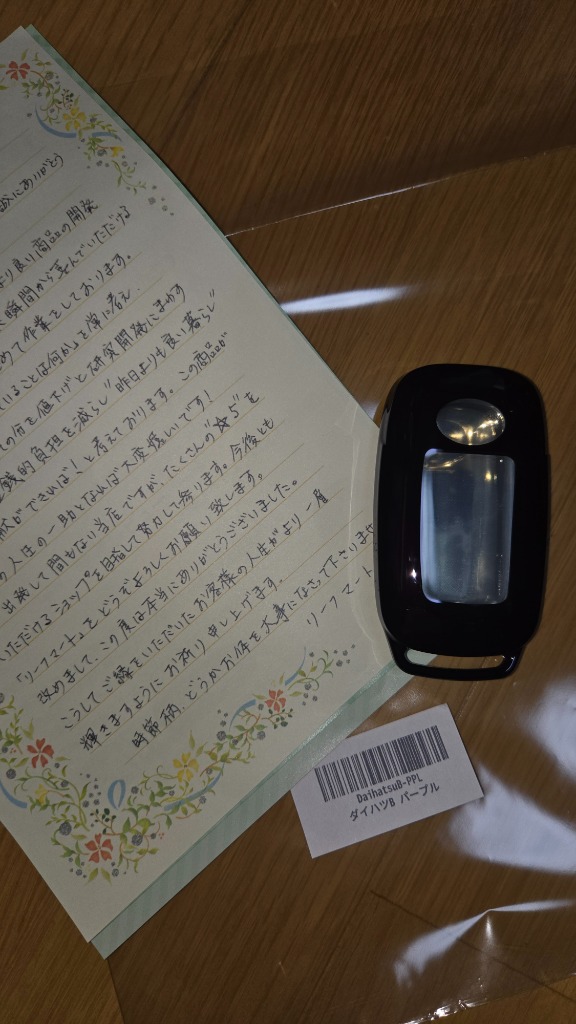 誠にありがとう
より良い商品の開発
瞬間から喜んでいただける
めて作業をしております。
いることは何か」を常に考え
の質を値下げと研究開発にまわす
金銭的負担を減らし"昨日よりも良い暮らし"
献ができれば！と考えております。この商品が
の人生の一助となれば大変嬉しいです！
出発して間もない当店ですが、たくさんの"☆5"を
いただけるショップを目指して努力して参ります。今後とも
「リーフマート」をどうぞよろしくお願い致します。
改めまして、この度は本当にありがとうございました。
こうしてご縁をいただいたお客様の人生がより一層
輝きますようにお祈り申し上げます。
時節柄、どうかお体を大事になさって下さりませ
リーフマート
DaihatsuB-PPL
ダイハツB パープル